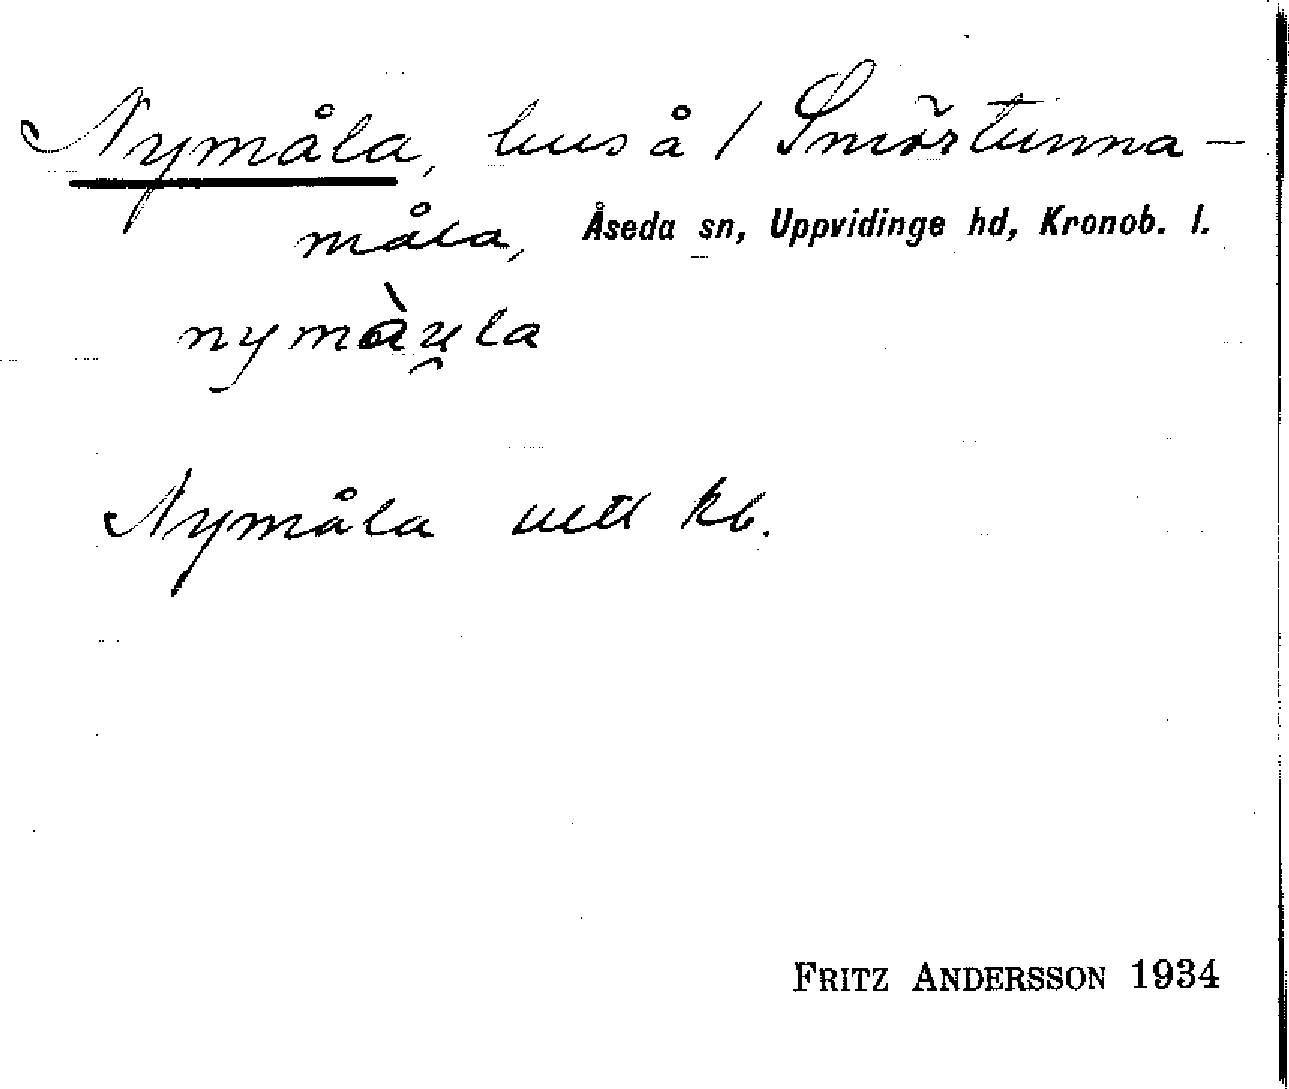 Nymåla, hus å / Smörtunna-
måla, Åseda sn, Uppvidinge hd, Kronob. l.
nymàu̯la
Nymåla uttl kb.
FRITZ ANDERSSON 1934